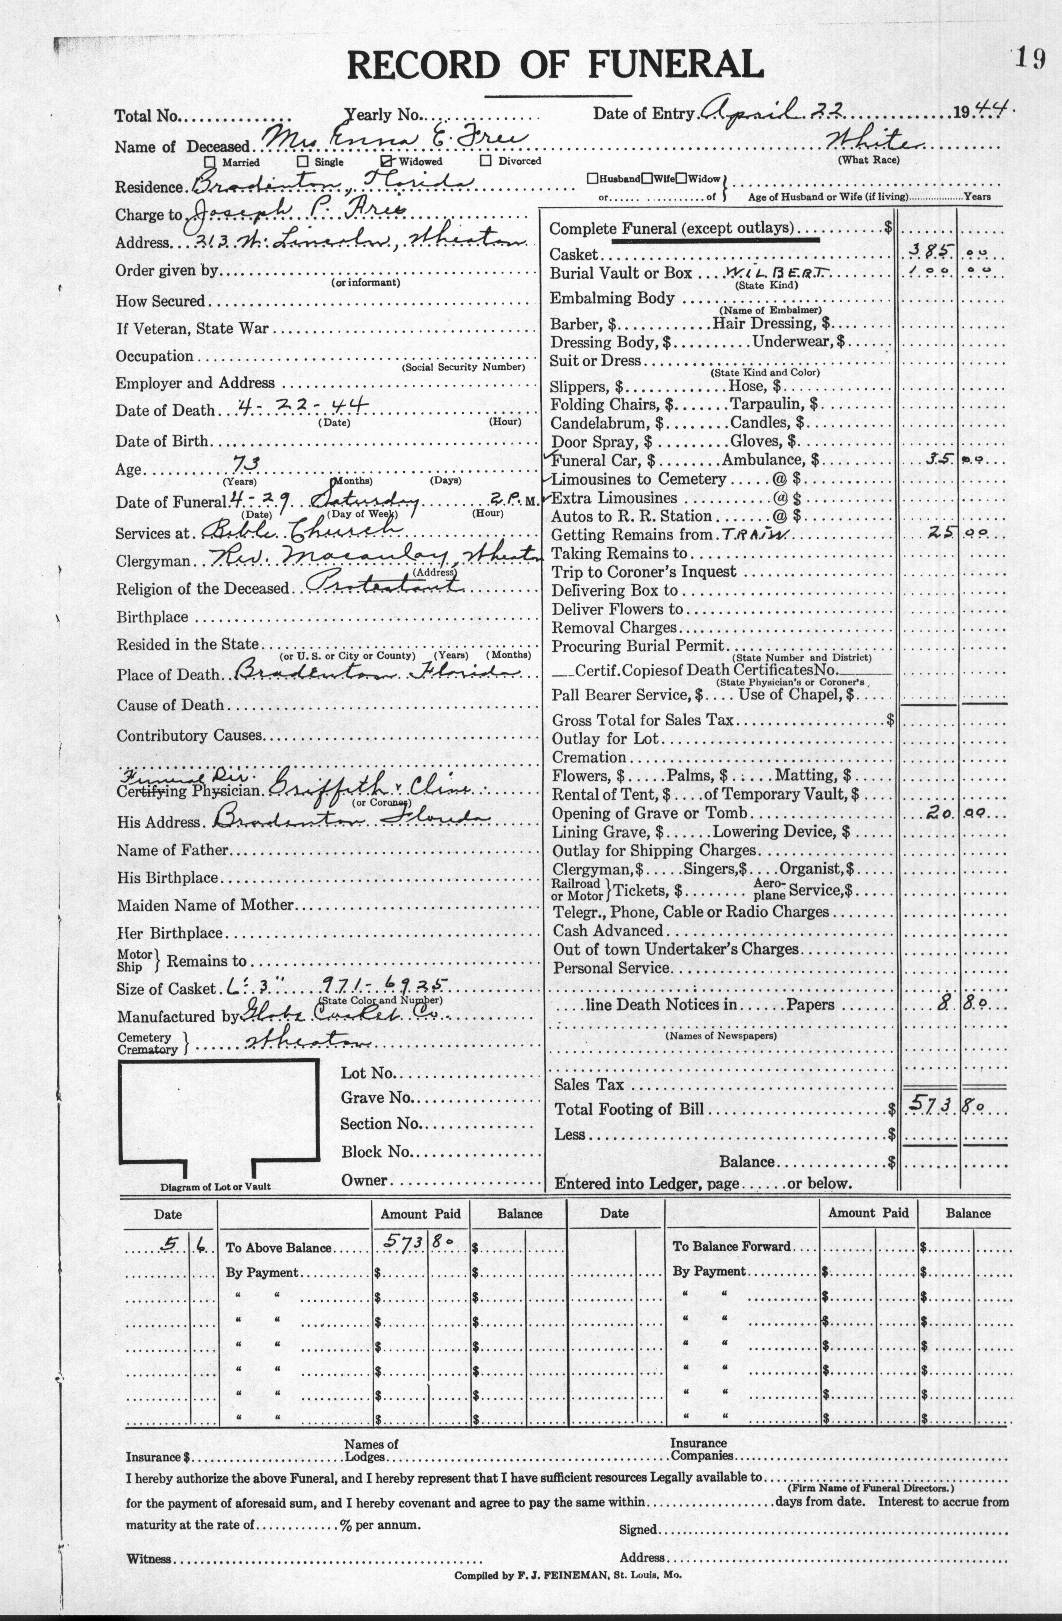 19
RECORD OF FUNERAL
Total No.............. Yearly No.............. Date of Entry. April 22 ............ 1944.
Name of Deceased. Mrs Emma E. Free White
☐ Married ☐ Single ☑ Widowed ☐ Divorced (What Race)
Residence. Bradenton, Florida ☐Husband☐Wife☐Widow
or...... ........... of Age of Husband or Wife (if living)................Years
Charge to Joseph P.
Address... 213 W. Lincoln, Wheaton
Order given by
(or informant)
How Secured
If Veteran, State War
Occupation
(Social Security Number)
Employer and Address
Date of Death... 4-22-44
(Date) (Hour)
Date of Birth
Age.......... 73
(Years) (Months) (Days)
Date of Funeral 4-29 Saturday 2 P. M.
(Date) (Day of Week) (Hour)
Services at. Bible Church
Clergyman.. Rev. Macaulay, Wheaton
(Address)
Religion of the Deceased.. Protestant
Birthplace
Resided in the State
(or U. S. or City or County) (Years) (Months)
Place of Death.. Bradenton Florida
Cause of Death
Contributory Causes
Funeral Dir.
Certifying Physician. Griffith & Cline
(or Coroner)
His Address. Bradenton Florida
Name of Father
His Birthplace
Maiden Name of Mother
Her Birthplace
Motor Ship } Remains to
Size of Casket. 6' 3" 971-6925
(State Color and Number)
Manufactured by Globe Casket Co.
Cemetery
Crematory } ...... Wheaton
Lot No.
Grave No.
Section No.
Block No.
Owner
Diagram of Lot or Vault
Complete Funeral (except outlays)...........$
Casket 385 00
Burial Vault or Box ... WILBERT 100 00
(State Kind)
Embalming Body
(Name of Embalmer)
Barber, $............Hair Dressing, $
Dressing Body, $..........Underwear, $
Suit or Dress
(State Kind and Color)
Slippers, $.............Hose, $
Folding Chairs, $.......Tarpaulin, $
Candelabrum, $........Candles, $
Door Spray, $.........Gloves, $
✓Funeral Car, $........Ambulance, $ 35 00
✓Limousines to Cemetery.....@ $
✓Extra Limousines ..........@ $
Autos to R. R. Station.......@ $
Getting Remains from. TRAIN 25 00
Taking Remains to
Trip to Coroner's Inquest
Delivering Box to
Deliver Flowers to
Removal Charges
Procuring Burial Permit
(State Number and District)
__Certif.Copiesof Death CertificatesNo.
(State Physician's or Coroner's
Pall Bearer Service, $.... Use of Chapel, $
Gross Total for Sales Tax..................$
Outlay for Lot
Cremation
Flowers, $.....Palms, $......Matting, $
Rental of Tent, $....of Temporary Vault, $
Opening of Grave or Tomb 20 00
Lining Grave, $......Lowering Device, $
Outlay for Shipping Charges
Clergyman,$.....Singers,$....Organist,$
Railroad or Motor } Tickets, $........ Aero-plane Service,$
Telegr., Phone, Cable or Radio Charges
Cash Advanced
Out of town Undertaker's Charges
Personal Service
....line Death Notices in......Papers 8 80
(Names of Newspapers)
Sales Tax
Total Footing of Bill.......................$ 573 80
Less.......................................$
Balance..............$
Entered into Ledger, page......or below.
Date Amount Paid Balance Date Amount Paid Balance
5 6 To Above Balance...... 573 80 $ To Balance Forward.... $
By Payment..........$ $ By Payment..........$ $
" " ..........$ $ " " ..........$ $
" " ..........$ $ " " ..........$ $
" " ..........$ $ " " ..........$ $
" " ..........$ $ " " ..........$ $
" " ..........$ $ " " ..........$ $
" " ..........$ $ " " ..........$ $
Insurance $.......... Names of Lodges.......... Insurance Companies
I hereby authorize the above Funeral, and I hereby represent that I have sufficient resources Legally available to
(Firm Name of Funeral Directors.)
for the payment of aforesaid sum, and I hereby covenant and agree to pay the same within....................days from date. Interest to accrue from
maturity at the rate of.............% per annum.
Signed
Witness.......... Address
Compiled by F. J. FEINEMAN, St. Louis, Mo.